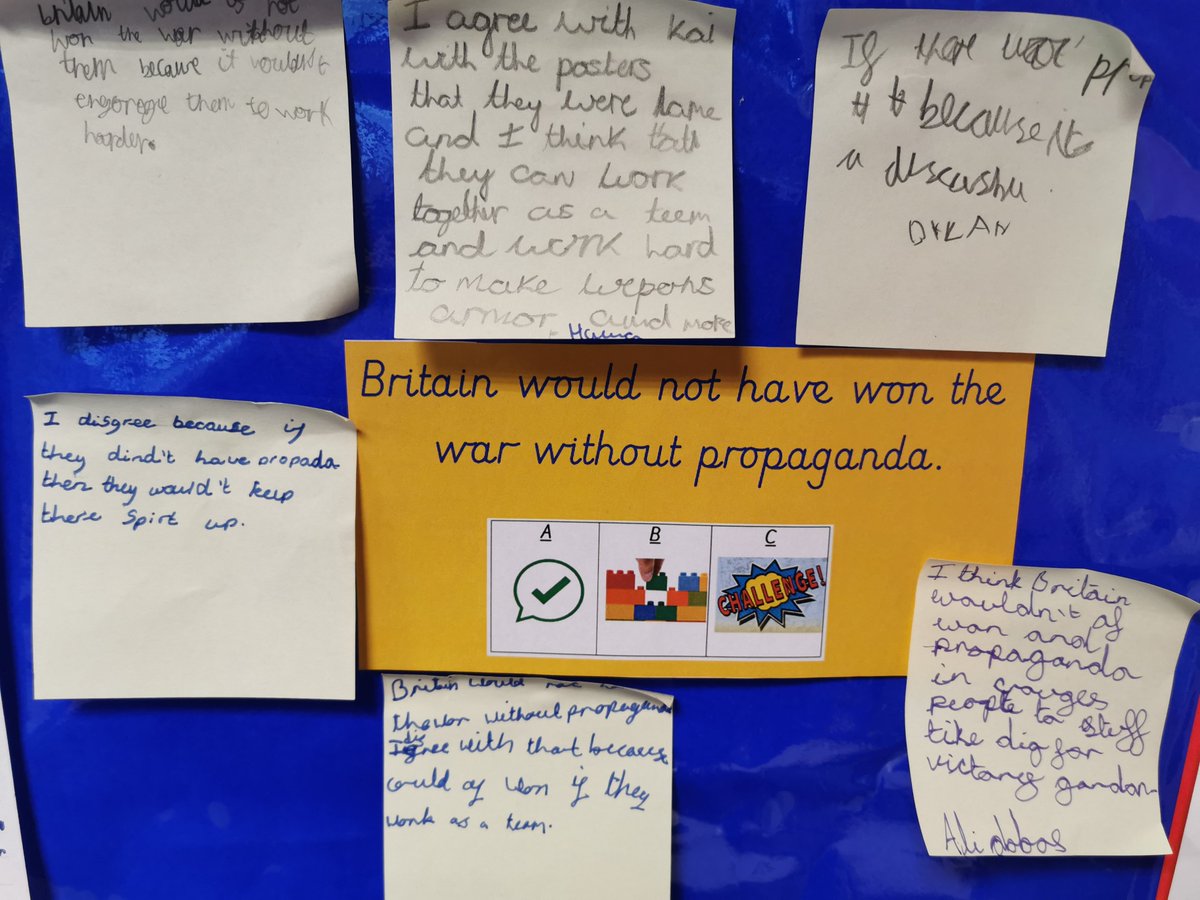 britain would not
won the war without
them because it wouldn't
them to work
harder.
I agree with Kai
with the posters
that they were lame
and I think that
they can work
together as a teem
and work hard
to make wepons
armor and more
If there
because it
a
DYLAN
Britain would not have won the
war without propaganda.
A
B
C
CHALLENGE!
I disgree because if
they dind't have propada
then they would't keep
there spirt up.
Britain would not
the war without propaganda
I disgree with that because
could of won if they
work as a team.
I think Britain
wouldn't of
won and
propaganda
in crouges
people to stuff
like dig for
victory gardon
Ali